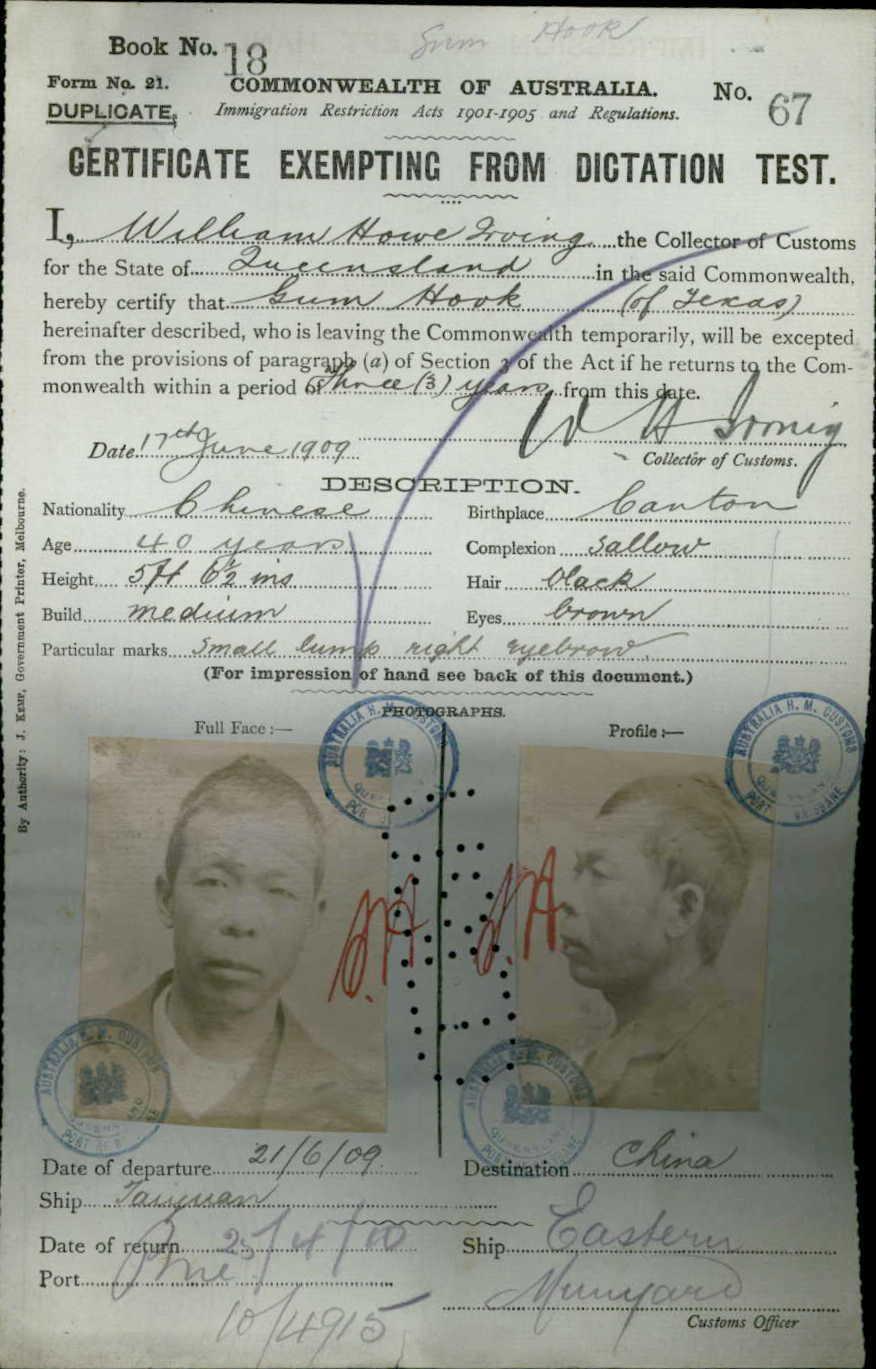 Gum Hook
Book No. 18
Form No. 21. COMMONWEALTH OF AUSTRALIA. No. 67
DUPLICATE. Immigration Restriction Acts 1901-1905 and Regulations.
CERTIFICATE EXEMPTING FROM DICTATION TEST.
I, William Howe Irving the Collector of Customs
for the State of Queensland in the said Commonwealth,
hereby certify that Gum Hook (of Texas)
hereinafter described, who is leaving the Commonwealth temporarily, will be excepted
from the provisions of paragraph (a) of Section 3 of the Act if he returns to the Com-
monwealth within a period of Three (3) years from this date.
W H Irving
Date 17th June 1909
Collector of Customs.
DESCRIPTION.
Nationality Chinese Birthplace Canton
Age 40 years Complexion Sallow
Height 5ft 6½ ins Hair black
Build medium Eyes brown
Particular marks Small lump right eyebrow.
(For impression of hand see back of this document.)
PHOTOGRAPHS.
Full Face :— Profile :—
AUSTRALIA H. M. CUSTOMS
AUSTRALIA H. M. CUSTOMS
PORT BRISBANE
AUSTRALIA H. M. CUSTOMS
AUSTRALIA H. M. CUSTOMS
Date of departure 21/6/09 Destination China
Ship Taiyuan
Date of return 25/4/10 Ship Eastern
Port Bne
Munyard
Customs Officer
10/4915
By Authority: J. KEMP, Government Printer, Melbourne.